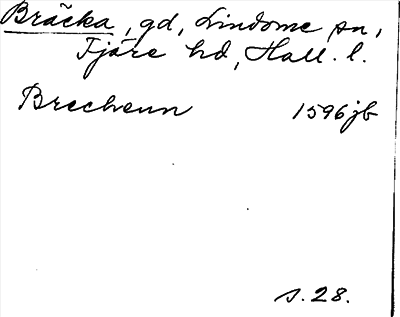 Bräcka, gd, Lindome sn,
Fjäre hd, Hall. l.
Brechenn 1596 jb
s. 28.